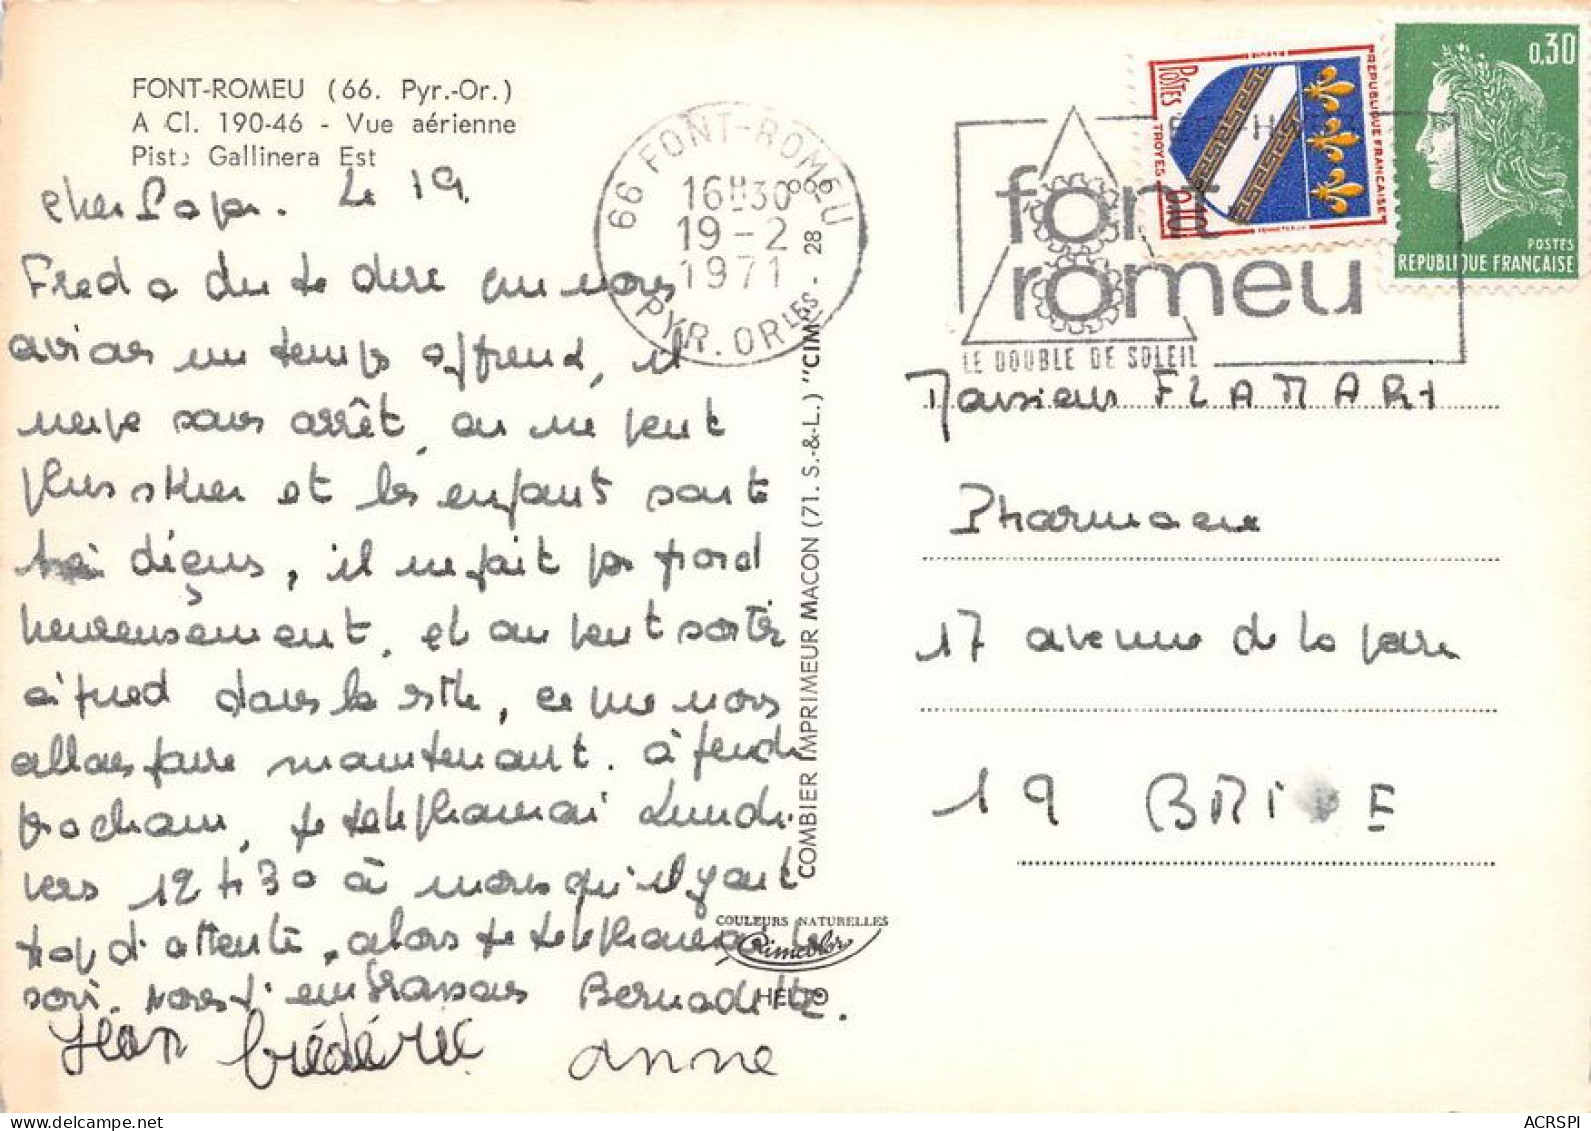 FONT-ROMEU (66. Pyr.-Or.)
A Cl. 190-46 - Vue aérienne
Piste Gallinera Est
Cher Papa. Le 19.
Fred a du te dire que nous
avions un temps affreux, il
neige sans arrêt, on ne peut
plus skier et les enfants sont
très déçus, il ne fait pas froid
heureusement, et on peut sortir
à pied dans la ville, ce que nous
allons faire maintenant. à jeudi
prochain, je téléphonerai Lundi
vers 12 H 30 à moins qu'il y ait
trop d'attente, alors je téléphonerai le
soir. Nous t'embrassons Bernadette.
Jean frédéric anne
66 FONT-ROMEU
16H30
19-2
1971
PYR. ORLES
28
font
romeu
LE DOUBLE DE SOLEIL
POSTES
REPUBLIQUE FRANÇAISE
TROYES
0,10
0,30
POSTES
REPUBLIQUE FRANÇAISE
COMBIER IMPRIMEUR MACON (71. S.-&-L.) "CIM"
COULEURS NATURELLES
Cimcolor
HELIO
Monsieur FLAMARY
Pharmacie
17 avenue de la gare
19 BRIVE
ACRSPI